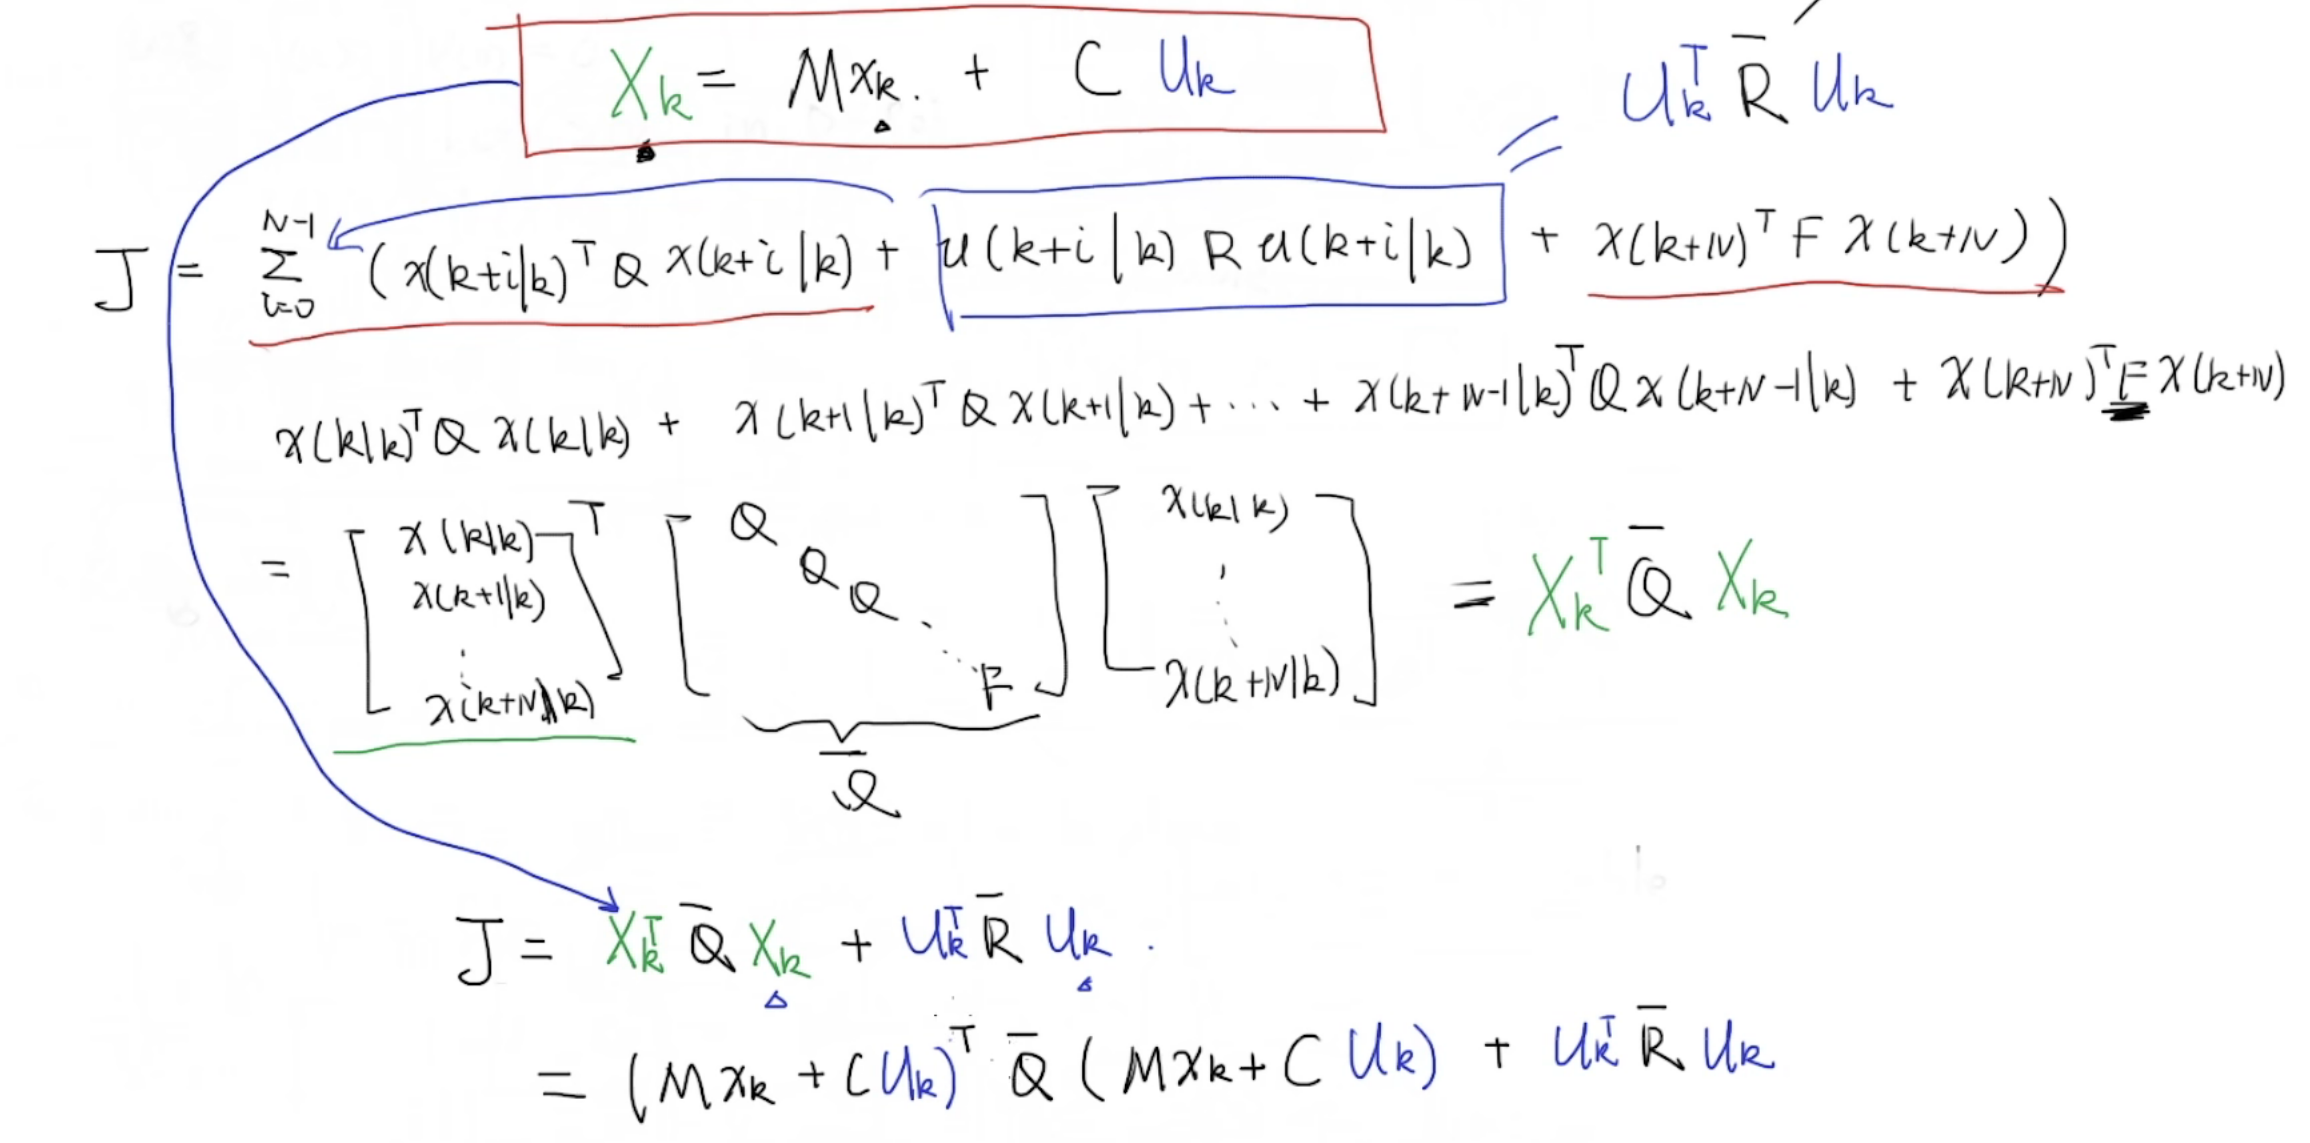 X_k = M x_k . + C U_k
U_k^T R̄ U_k
J = Σ_{i=0}^{N-1} ( x(k+i|k)^T Q x(k+i|k) + u(k+i|k) R u(k+i|k) + x(k+N)^T F x(k+N) )
x(k|k)^T Q x(k|k) + x(k+1|k)^T Q x(k+1|k) + ⋯ + x(k+N-1|k)^T Q x(k+N-1|k) + x(k+N)^T F x(k+N)
= [ x(k|k) x(k+1|k) ⋮ x(k+N|k) ]^T [ Q Q Q ⋱ F ] [ x(k|k) ⋮ x(k+N|k) ] = X_k^T Q̄ X_k
Q̄
J = X_k^T Q̄ X_k + U_k^T R̄ U_k .
= (M x_k + C U_k)^T Q̄ (M x_k + C U_k) + U_k^T R̄ U_k